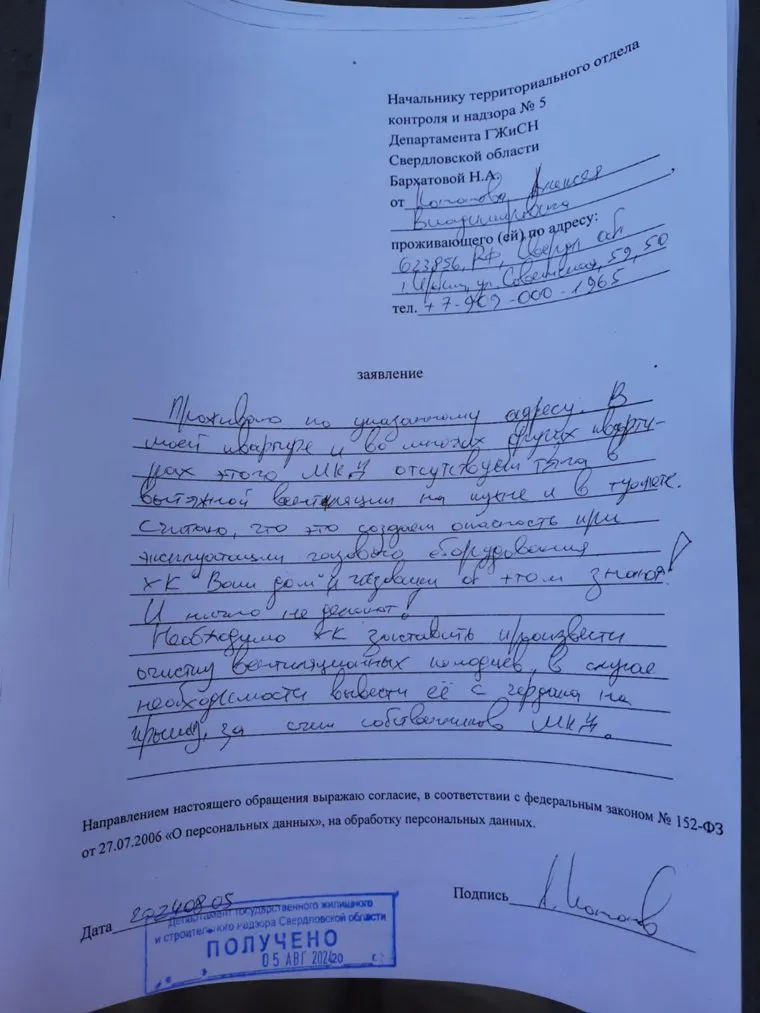 Начальнику территориального отдела
контроля и надзора № 5
Департамента ГЖиСН
Свердловской области
Бархатовой Н.А.
от Копотова Алексея
Владимировича,
проживающего (ей) по адресу:
623856, РФ, Сверд. обл
г. Ирбит, ул. Советская, 59, 50
тел. +7-909-000-1965
заявление
Проживаю по указанному адресу. В
моей квартире и во многих других кварти-
рах этого МКД отсутствует тяга в
вытяжной вентиляции на кухне и в туалете.
Считаю, что это создает опасность при
эксплуатации газового оборудования
УК "Ваш дом" и газовщики об этом знают!
И ничего не делают!
Необходимо УК заставить произвести
очистку вентиляционных колодцев, в случае
необходимости вывести её с чердака на
крышу, за счет собственников МКД.
Направлением настоящего обращения выражаю согласие, в соответствии с федеральным законом № 152-ФЗ
от 27.07.2006 «О персональных данных», на обработку персональных данных.
Дата 20240805
Подпись
Департамент государственного жилищного
и строительного надзора Свердловской области
ПОЛУЧЕНО
05 АВГ 2024